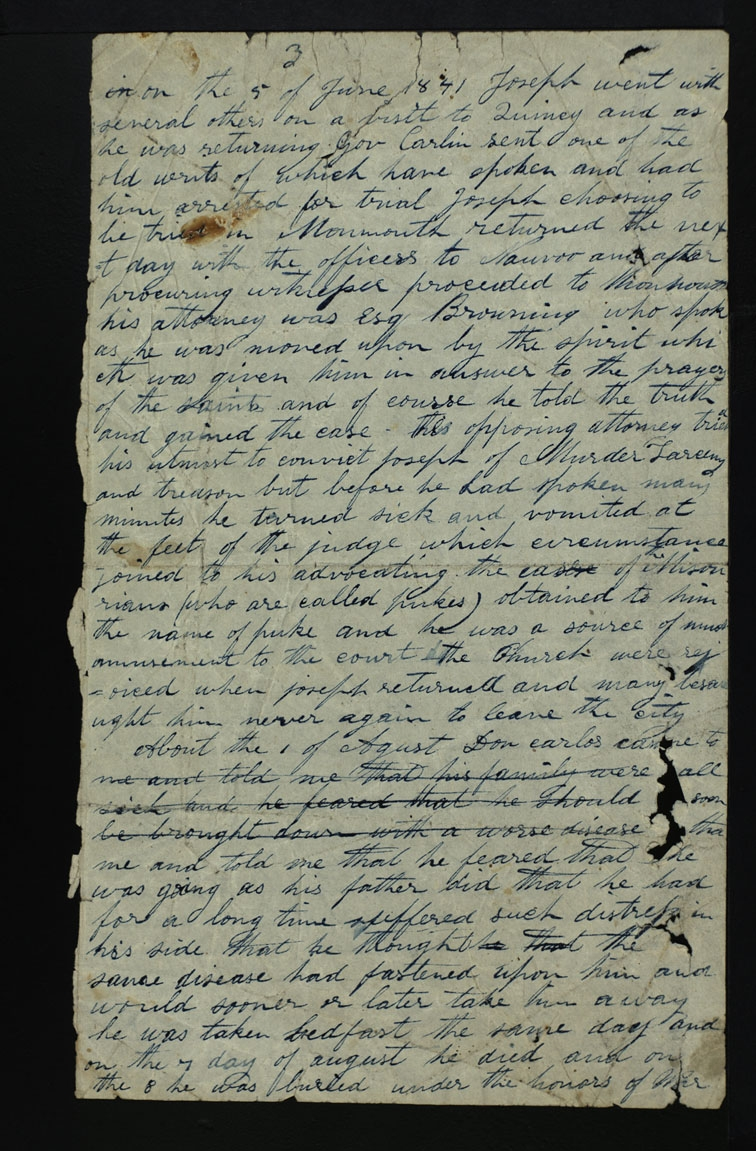 3
in on the 5 of June 1841 Joseph went with
several others on a visit to Quincy and as
he was returning Gov Carlin sent one of the
old writs of which have spoken and had
him arrested for trial Joseph choosing to
be tried in Monmouth returned the nex
-t day with the officers to Nauvoo and after
procuring witnesses proceeded to Monmouth
his attorney was Esq Browning who spoke
as he was moved upon by the spirit whi
ch was given him in answer to the prayers
of the saints and of course he told the truth
and gained the case - this opposing attorney tried
his utmost to convict Joseph of Murder Larceny
and treason but before he had spoken many
minutes he turned sick and vomited at
the feet of the judge which circumstance
joined to his advocating the case of the Misou
rians (who are called pukes) obtained to him
the name of puke and he was a source of much
amusement to the court the Church were rej
-oiced when joseph returned and many besa
ught him never again to leave the city
About the 1 of Agust Don carlos came to
me and told me that his family were all
sick and he feared that he should soon
be brought down with a worse disease tha
me and told me that he feared that he
was going as his father did that he had
for a long time suffered such distress in
his side that he thought that the
same disease had fastened upon him and
would sooner or later take him away
he was taken bedfast the same day and
on the 7 day of august he died and on
the 8 he was buried under the honors of War